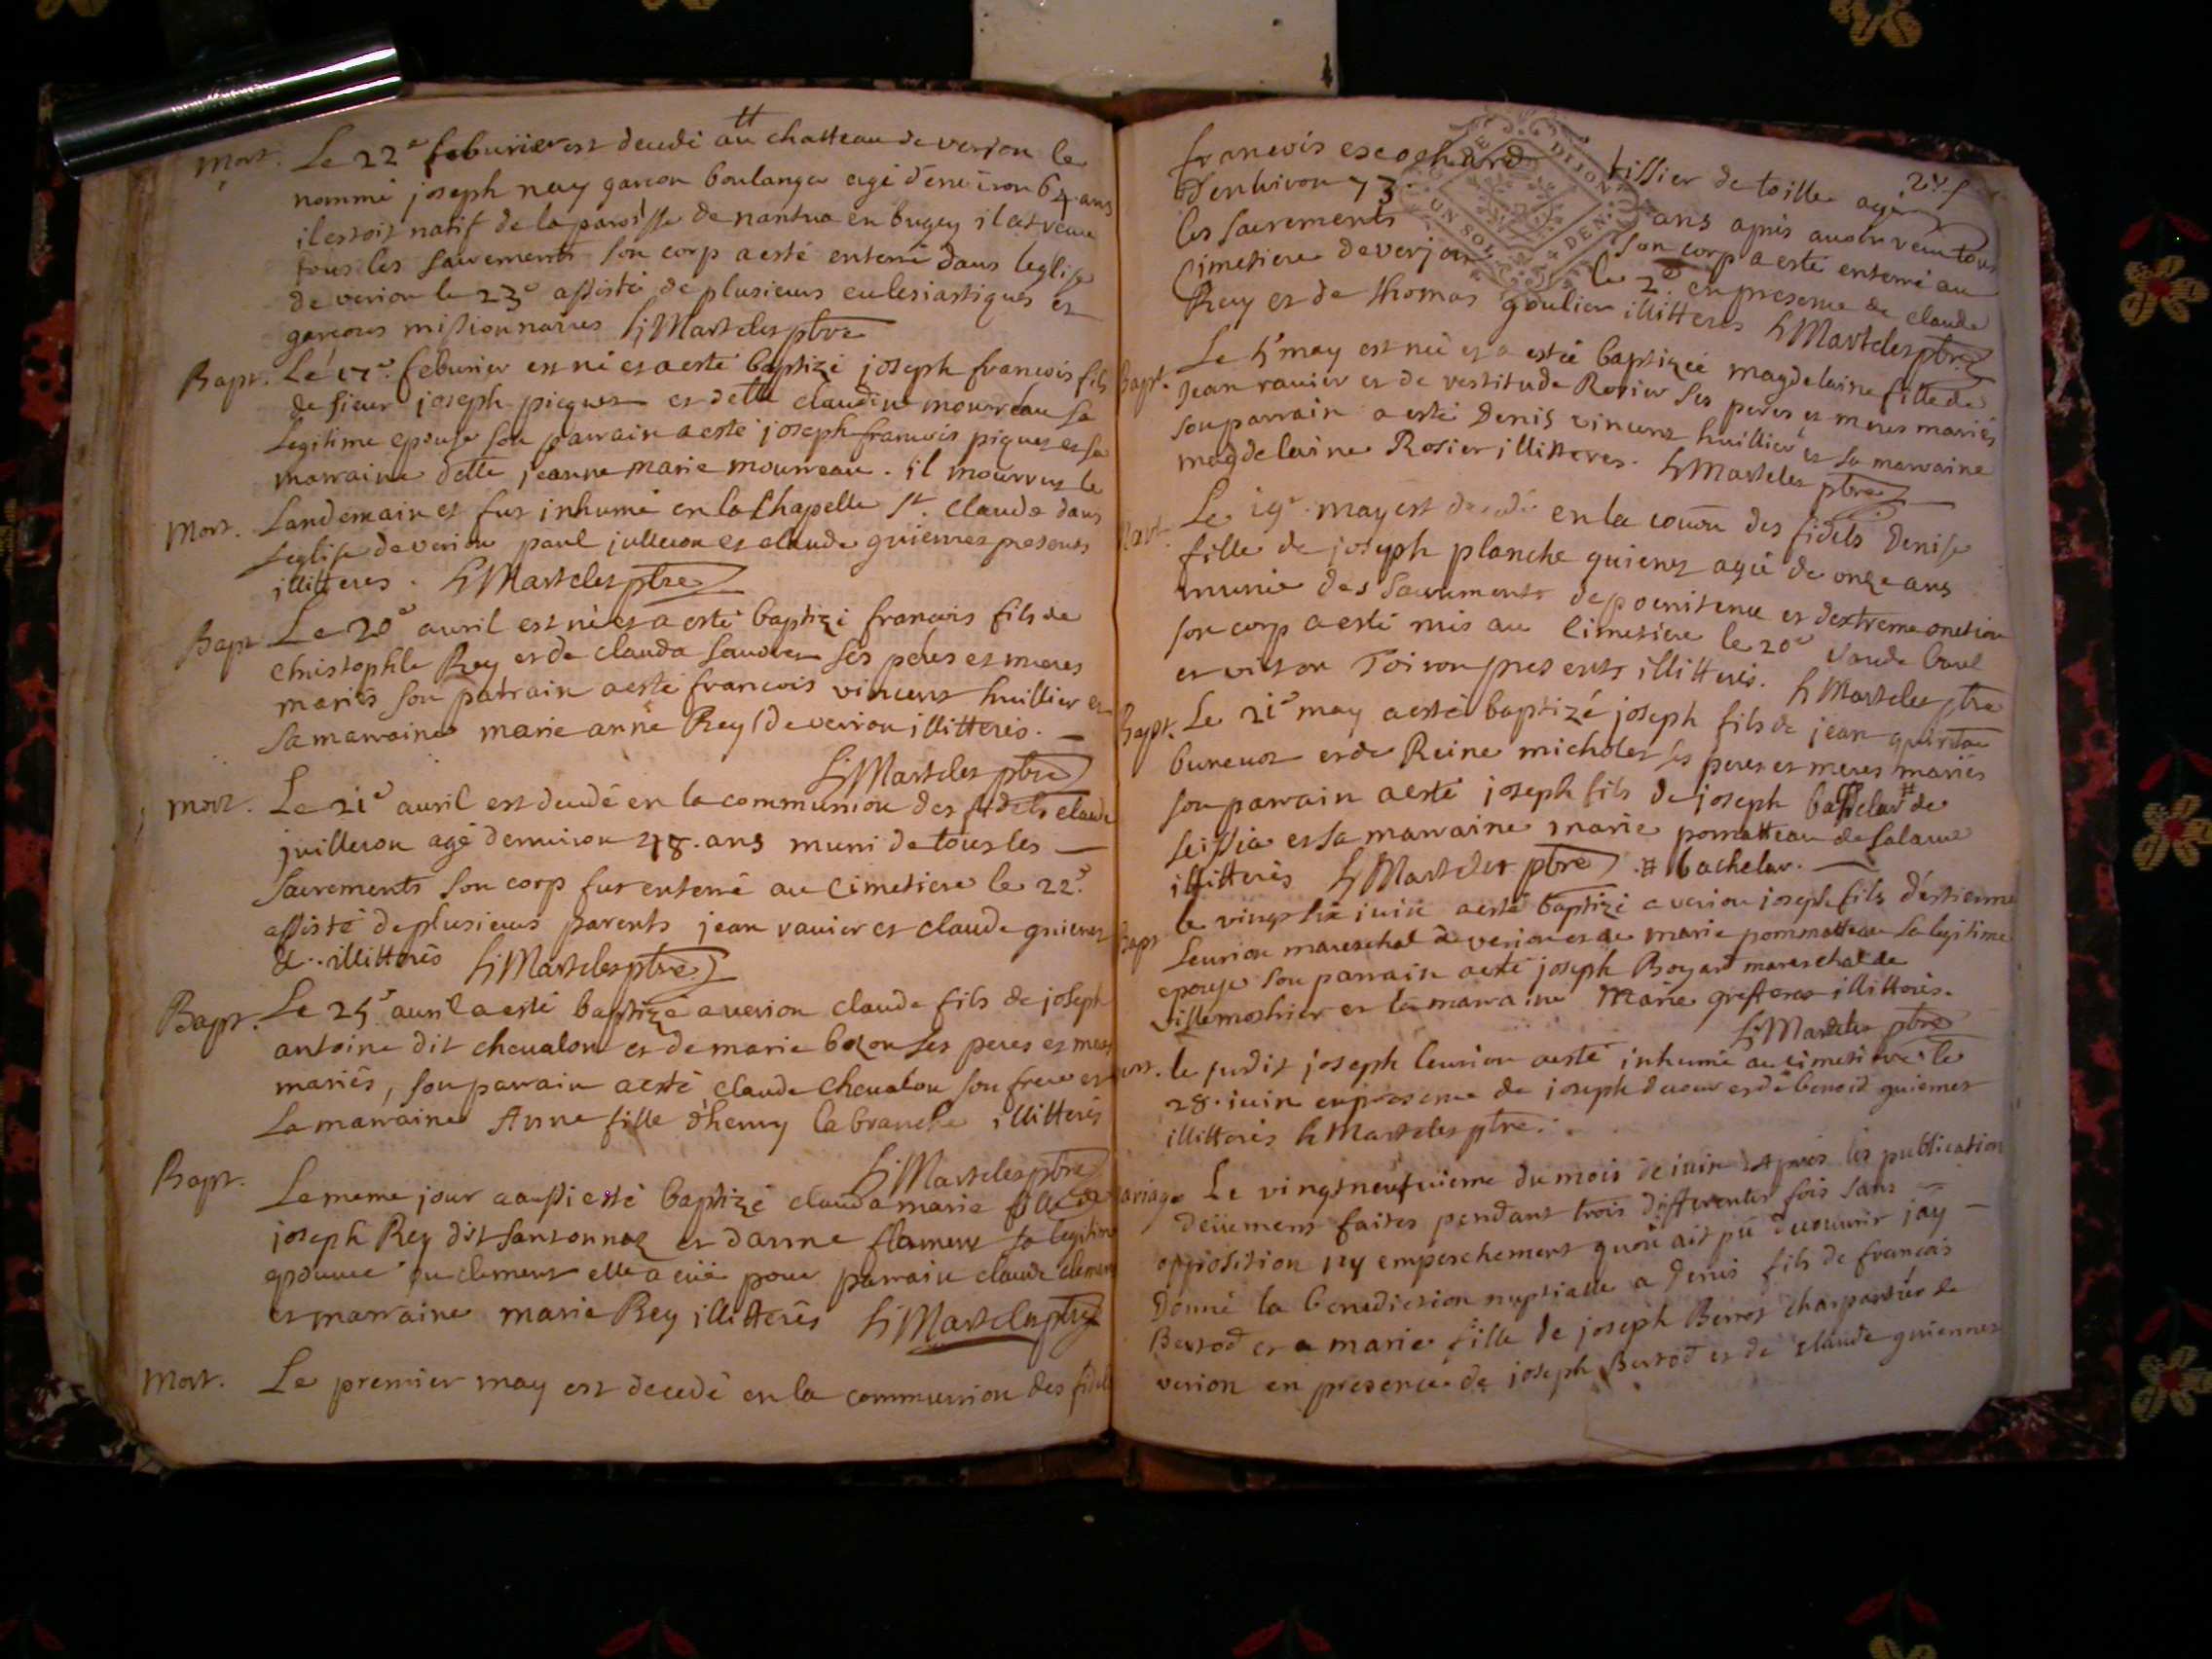 Mort. Le 22e feburier est decedé au chatteau de verion le
nommé joseph ney garcon boulanger agé denviron 64 ans
il estoit natif de la paroisse de nantua en bugey il at receu
tous les sacrements son corp a esté enterré dans leglise
de verion le 23e assisté de plusieurs eclesiastiques et
garcons missionnaires h Marteles ptre
Bapt. Le 17e feburier est né et a esté baptizé joseph francois fils
de sieur joseph piquet et delle claudine mourreau sa
Legitime epouse son parrain a esté joseph francois piquet et sa
marraine delle jeanne marie mourreau. il mourrut le
Mort. Landemain et fut inhumé en la chapelle St. claude dans
leglise de verion paul julleron et claude guiennet presents
illitterés. h Marteles ptre
Bapt Le 20e auril est né et a esté baptizé francois fils de
christophle Rey et de clauda ses peres et meres
mariés son parrain a esté francois vincent huillier et
sa marraine marie anne Rey de verion illitterés.
h Marteles ptre
Mort. Le 21e auril est decedé en la communion des fidels claude
juilleron agé denuiron 48. ans muni de tous les
sacrements son corp fut enterré au cimetiere le 22e
assisté de plusieurs parents jean ravier et claude guiennet
&.. illitterés h Marteles ptre
Bapt. Le 25e auril a esté baptizé a verion claude fils de joseph
antoine dit cheualon et de marie bozon ses peres et meres
mariés, son parrain a esté claude cheualon son frere et
La marraine Anne fille dhenry labranche illitterés
h Marteles ptre
Bapt. Le meme jour a aussi esté baptizé clauda marie fille de
joseph Rey dit santonnaz et danne flament sa legitime
epouse ou clement elle a eüe pour parrain claude clement
et marraine marie Rey illitterés h Marteles ptre
Mort. Le premier may est decedé en la communion des fidels
francois escochard tissier de toille agé
denhiron 73. ans apres auoir receu tous
les sacrements son corp a esté enterré au
Cimetiere de verjon le 2e en presence de claude
Rey et de thomas goulier illitterés h Marteles ptre
Bapt. Le 5e may est née et a estée baptizée magdelaine fille de
Jean ravier et de Rosier ses peres et meres mariés
son parrain a esté Denis vincent huillier et sa marraine
magdelaine Rosier illitteres. h Marteles ptre
Mort. Le 19e may est decedé en la coüon des fidels Denise
fille de joseph planche guienet agée de onze ans
munie des sacrements de poenitence et dextreme onction
son corp a esté mis au cimetiere le 20e
et Toiron presents illitterés. h Marteles ptre
Bapt. Le 21e may a esté baptizé joseph fils de jean
et de Reine micholet ses peres et meres mariés
son parrain a esté joseph fils de joseph # de
et sa marraine marie pomatteau de salaure
illitterés h Marteles ptre # bachelar.
Bapt le vingt six juin a esté baptizé a verion joseph fils d'estienne
Leurion mareschal a verion et de marie pommatteau sa legitime
epouse son parrain a esté joseph Boyard mareschal de
villemoshier et la marraine Marie illitterés.
h Marteles ptre
le susdit joseph leurion a esté inhumé au cimetiere le
28. juin en presence de joseph et de benoid guiennet
illitterés h Marteles ptre.
Mariage Le vingt neufuieme du mois de juin Apres les publication
deüement faites pendant trois differentes fois sans
opposition ny empeschement quon ait pu decouurir jay
Donné la benediction nuptialle a Denis fils de francois
Bertod et a marie fille de joseph Berrot charpentier de
verion en presence de joseph Bertod et de claude guiennet
DE DIJON
UN SOL 4 DEN.